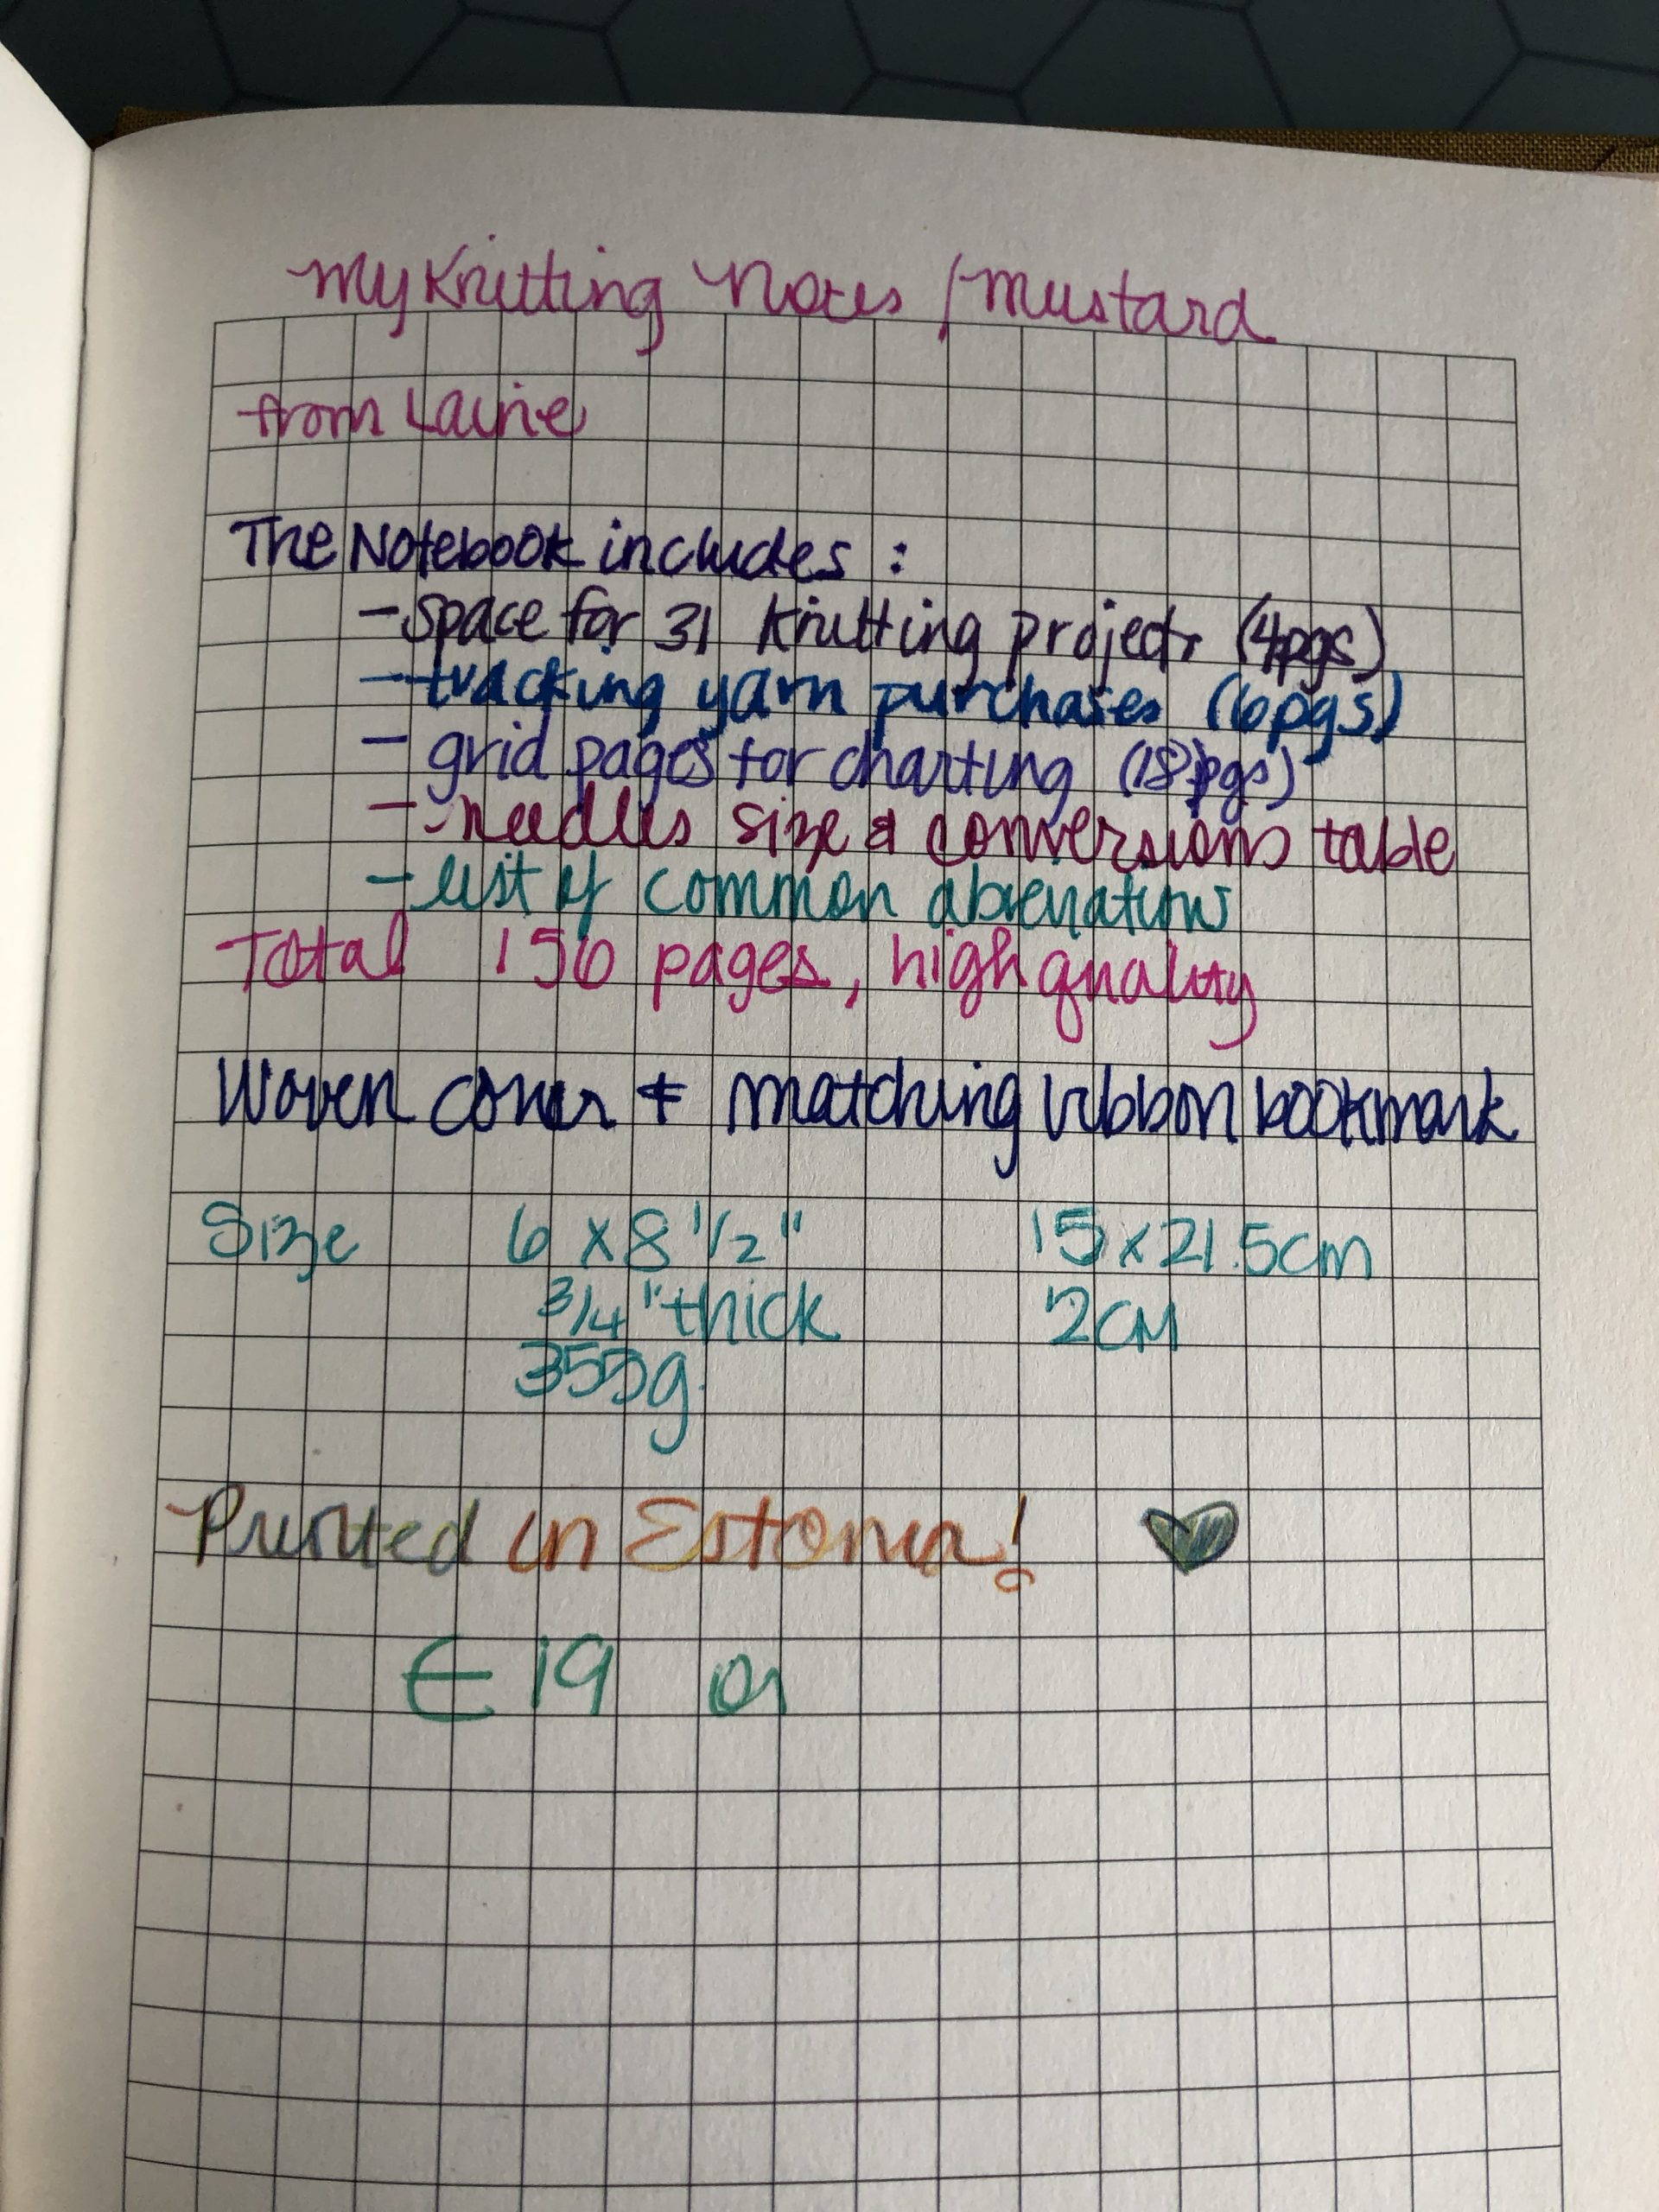 My Knitting Notes / Mustard
from Laine
The Notebook includes :
- Space for 31 Knitting projects (4pgs)
- tracking yarn purchases (6pgs)
- grid pages for charting (18pgs)
- needles size & conversions table
- list of common abbreviations
Total 156 pages, high quality
Woven cover + matching ribbon bookmark
Size 6 x 8 1/2" 15 x 21.5cm
3/4" thick 2CM
355g.
Printed in Estonia!
€ 19 or